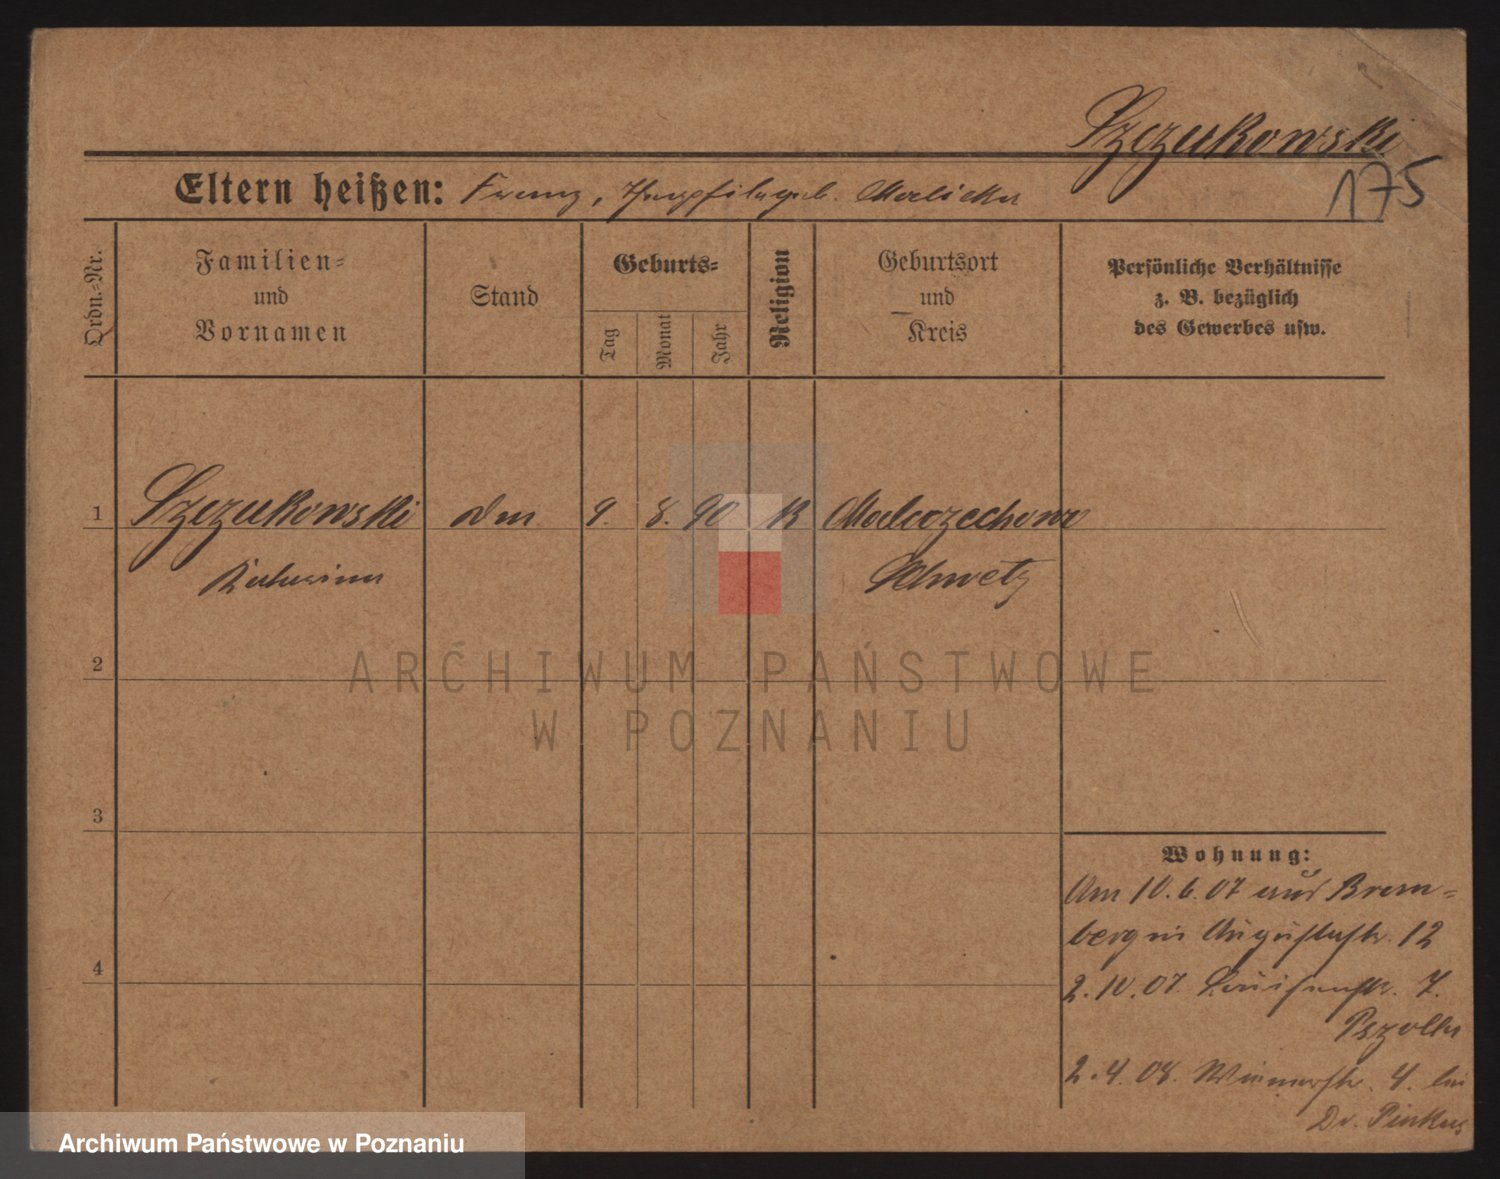 Szczukowski
175
Eltern heißen: Franz, Theophila geb. Malicka
Ordn.-Nr.
Familien-
und
Vornamen
Stand
Geburts-
Tag
Monat
Jahr
Religion
Geburtsort
und
Kreis
Persönliche Verhältnisse
z. B. bezüglich
des Gewerbes usw.
1
Szczukowski
9. 8. 90
K
Schwetz
2
ARCHIWUM PAŃSTWOWE
W POZNANIU
3
4
Wohnung:
Am 10.6.07 aus Brom-
berg in Augustastr. 12
2.10.07. Louisenstr. 7.
2.4.08. 4. bei
Dr. Pinkus
Archiwum Państwowe w Poznaniu